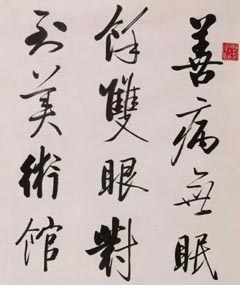 善病無眠
餘雙眼對
到美術館